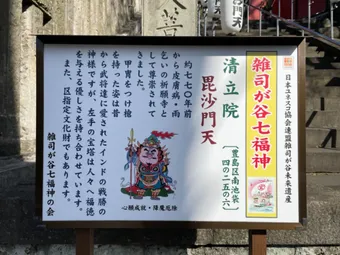 日本ユネスコ協会連盟雑司が谷未来遺産
雑司が谷七福神
清立院
(豊島区南池袋
四の二五の六)
毘沙門天
約七七〇年前
から皮膚病・雨
乞いの祈願寺と
して尊崇されて
きました。
甲冑をつけ槍
を持った姿は昔
から武将に愛されたインドの戦勝の
神様ですが、左手の宝塔は人々へ福徳
を与える優しさを持ち合わせています。
また、区指定文化財でもあります。
雑司が谷七福神の会
心願成就・降魔厄除